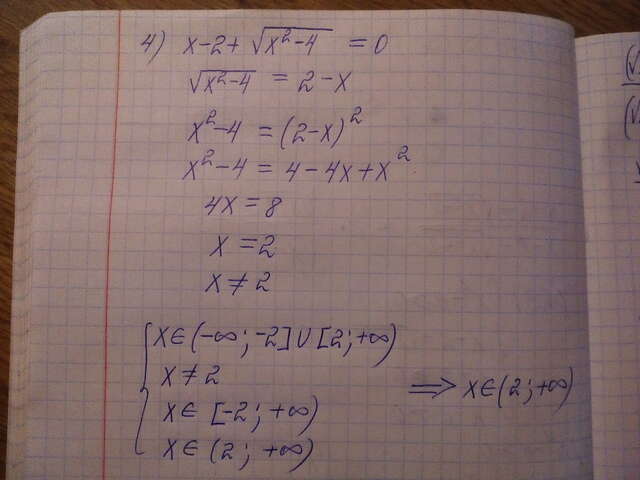 4) x-2+ √(x²-4) = 0
√(x²-4) = 2-x
x²-4 = (2-x)²
x²-4 = 4-4x+x²
4x = 8
x = 2
x ≠ 2
x∈(-∞; -2]∪[2; +∞)
x ≠ 2
x∈ [-2; +∞)
x∈ (2; +∞)
⟹ x∈(2; +∞)